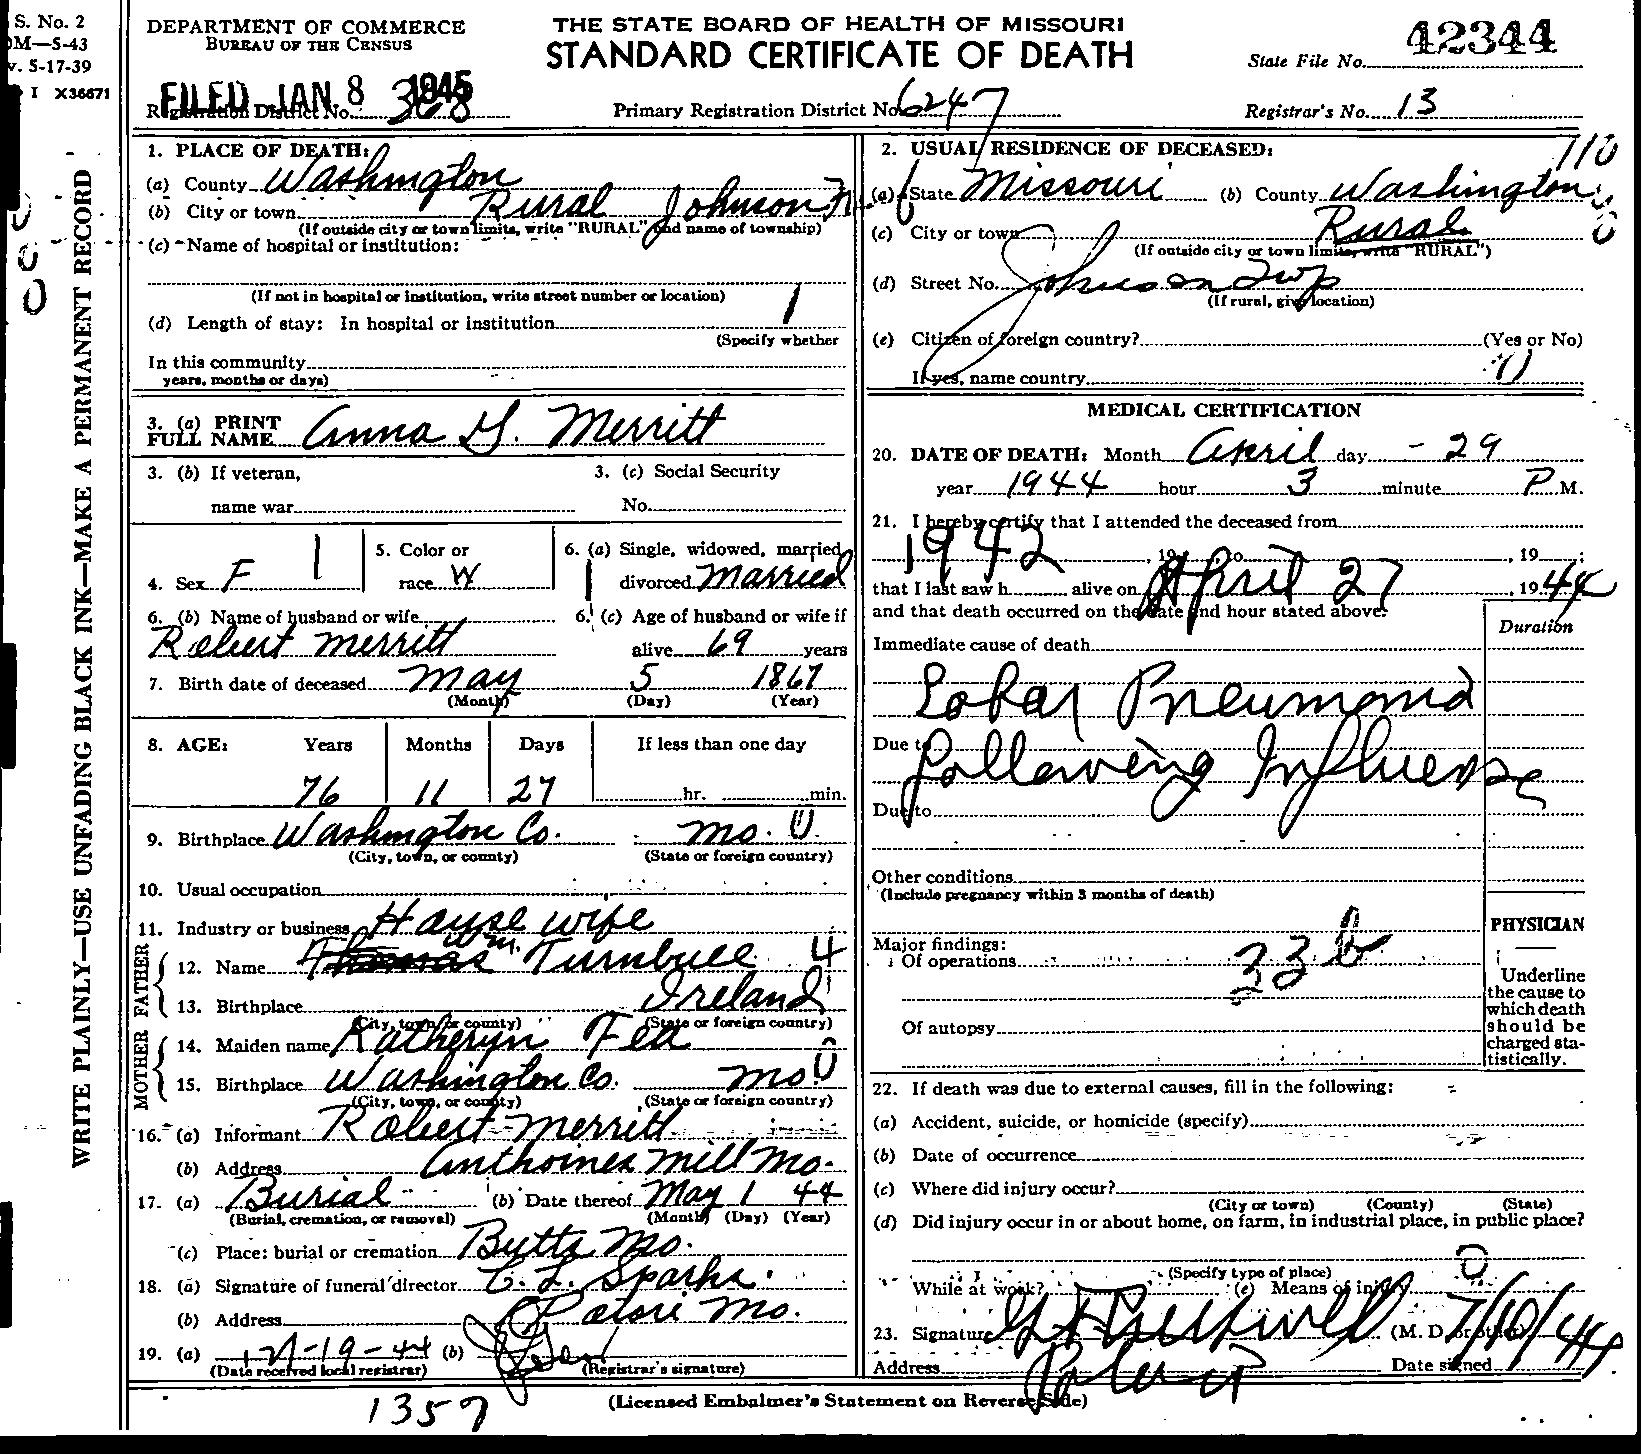 S. No. 2
OM—5-43
v. 5-17-39
I X36671
DEPARTMENT OF COMMERCE
BUREAU OF THE CENSUS
THE STATE BOARD OF HEALTH OF MISSOURI
STANDARD CERTIFICATE OF DEATH
State File No. 42344
FILED JAN 8 1945
Registration District No. 368
Primary Registration District No. 6247
Registrar's No. 13
WRITE PLAINLY—USE UNFADING BLACK INK—MAKE A PERMANENT RECORD
1. PLACE OF DEATH:
(a) County Washington
(b) City or town Rural Johnson
(If outside city or town limits, write "RURAL" and name of township)
(c) Name of hospital or institution:
(If not in hospital or institution, write street number or location)
(d) Length of stay: In hospital or institution
(Specify whether
In this community
years, months or days)
2. USUAL RESIDENCE OF DECEASED:
110
(a) State Missouri (b) County Washington
(c) City or town Rural
(If outside city or town limits, write "RURAL")
(d) Street No. Johnson Twp
(If rural, give location)
(e) Citizen of foreign country? (Yes or No)
If yes, name country
3. (a) PRINT
FULL NAME Anna G. Merritt
3. (b) If veteran,
name war
3. (c) Social Security
No.
4. Sex F 1
5. Color or
race W
6. (a) Single, widowed, married,
1 divorced Married
6. (b) Name of husband or wife
Robert Merritt
6. (c) Age of husband or wife if
alive 69 years
7. Birth date of deceased May 5 1867
(Month) (Day) (Year)
8. AGE: Years Months Days If less than one day
76 11 27 hr. min.
9. Birthplace Washington Co. Mo. 0
(City, town, or county) (State or foreign country)
10. Usual occupation
11. Industry or business House wife
FATHER
12. Name Thomas Wm. Turnbull 4
13. Birthplace Ireland
(City, town, or county) (State or foreign country)
MOTHER
14. Maiden name Katheryn Fea
15. Birthplace Washington Co. Mo. 0
(City, town, or county) (State or foreign country)
16. (a) Informant Robert Merritt
(b) Address Anthoines Mill Mo.
17. (a) Burial (b) Date thereof May 1 44
(Burial, cremation, or removal) (Month) (Day) (Year)
(c) Place: burial or cremation Butts Mo.
18. (a) Signature of funeral director C. L. Sparks
(b) Address Potosi Mo.
19. (a) 12-19-44 (b)
(Date received local registrar) (Registrar's signature)
MEDICAL CERTIFICATION
20. DATE OF DEATH: Month April day - 29
year 1944 hour 3 minute P M.
21. I hereby certify that I attended the deceased from
1942, 19 to , 19 ;
that I last saw h alive on April 27, 1944
and that death occurred on the date and hour stated above.
Duration
Immediate cause of death
Lobar Pneumonia
Due to
following Influenza
Due to
Other conditions
(Include pregnancy within 3 months of death)
Major findings:
Of operations 33 b
Of autopsy
PHYSICIAN
Underline
the cause to
which death
should be
charged sta-
tistically.
22. If death was due to external causes, fill in the following:
(a) Accident, suicide, or homicide (specify)
(b) Date of occurrence
(c) Where did injury occur?
(City or town) (County) (State)
(d) Did injury occur in or about home, on farm, in industrial place, in public place?
(Specify type of place)
While at work? (e) Means of injury
23. Signature (M. D. or other) 7/10/44
Address Date signed
(Licensed Embalmer's Statement on Reverse Side)
1357